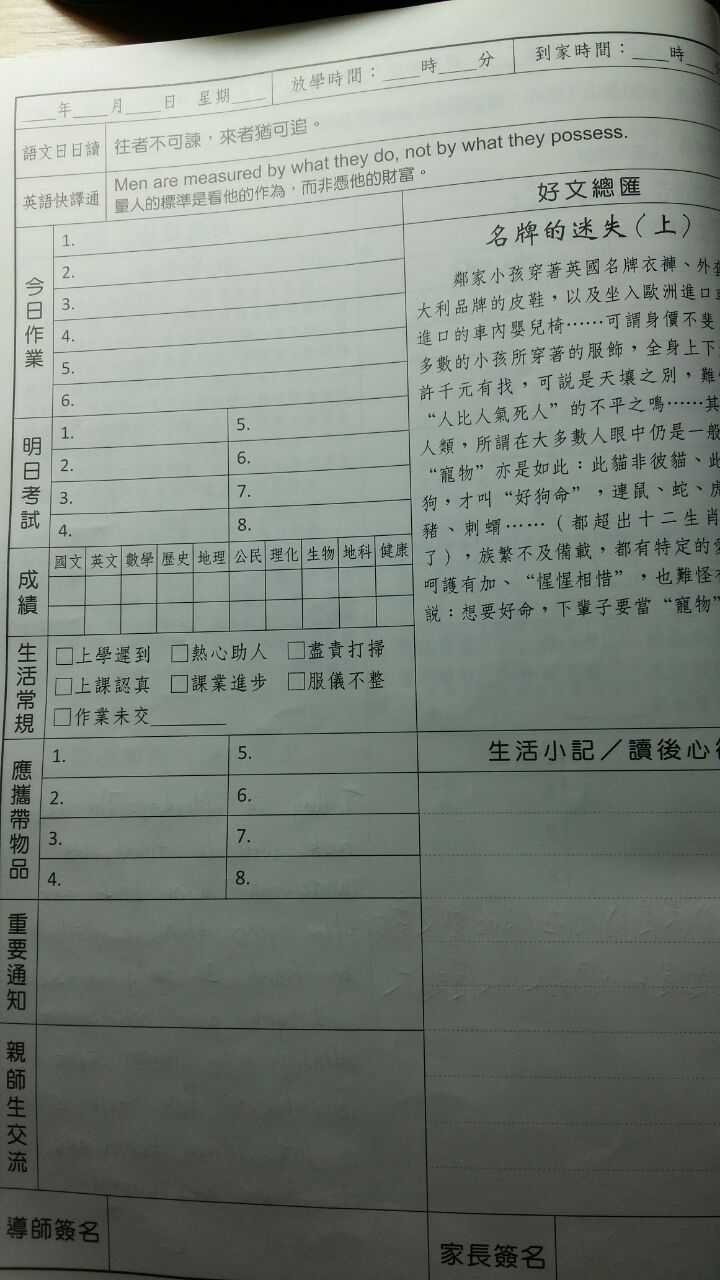 ____年____月____日 星期____ 放學時間：____時____分 到家時間：____時____
語文日日讀 往者不可諫，來者猶可追。
英語快譯通 Men are measured by what they do, not by what they possess.
量人的標準是看他的作為，而非憑他的財富。
今日作業
1.
2.
3.
4.
5.
6.
明日考試
1. 5.
2. 6.
3. 7.
4. 8.
成績
國文 英文 數學 歷史 地理 公民 理化 生物 地科 健康
生活常規
□上學遲到 □熱心助人 □盡責打掃
□上課認真 □課業進步 □服儀不整
□作業未交________
應攜帶物品
1. 5.
2. 6.
3. 7.
4. 8.
重要通知
親師生交流
導師簽名
好文總匯
名牌的迷失（上）
鄰家小孩穿著英國名牌衣褲、外
大利品牌的皮鞋，以及坐入歐洲進口
進口的車內嬰兒椅……可謂身價不斐
多數的小孩所穿著的服飾，全身上下
許千元有找，可說是天壤之別，難
“人比人氣死人”的不平之鳴……其
人類，所謂在大多數人眼中仍是一般
“寵物”亦是如此：此貓非彼貓、此
狗，才叫“好狗命”，連鼠、蛇、虎
豬、刺蝟……（都超出十二生肖
了），族繁不及備載，都有特定的
呵護有加、“惺惺相惜”，也難怪
說：想要好命，下輩子要當“寵物”
生活小記／讀後心
家長簽名